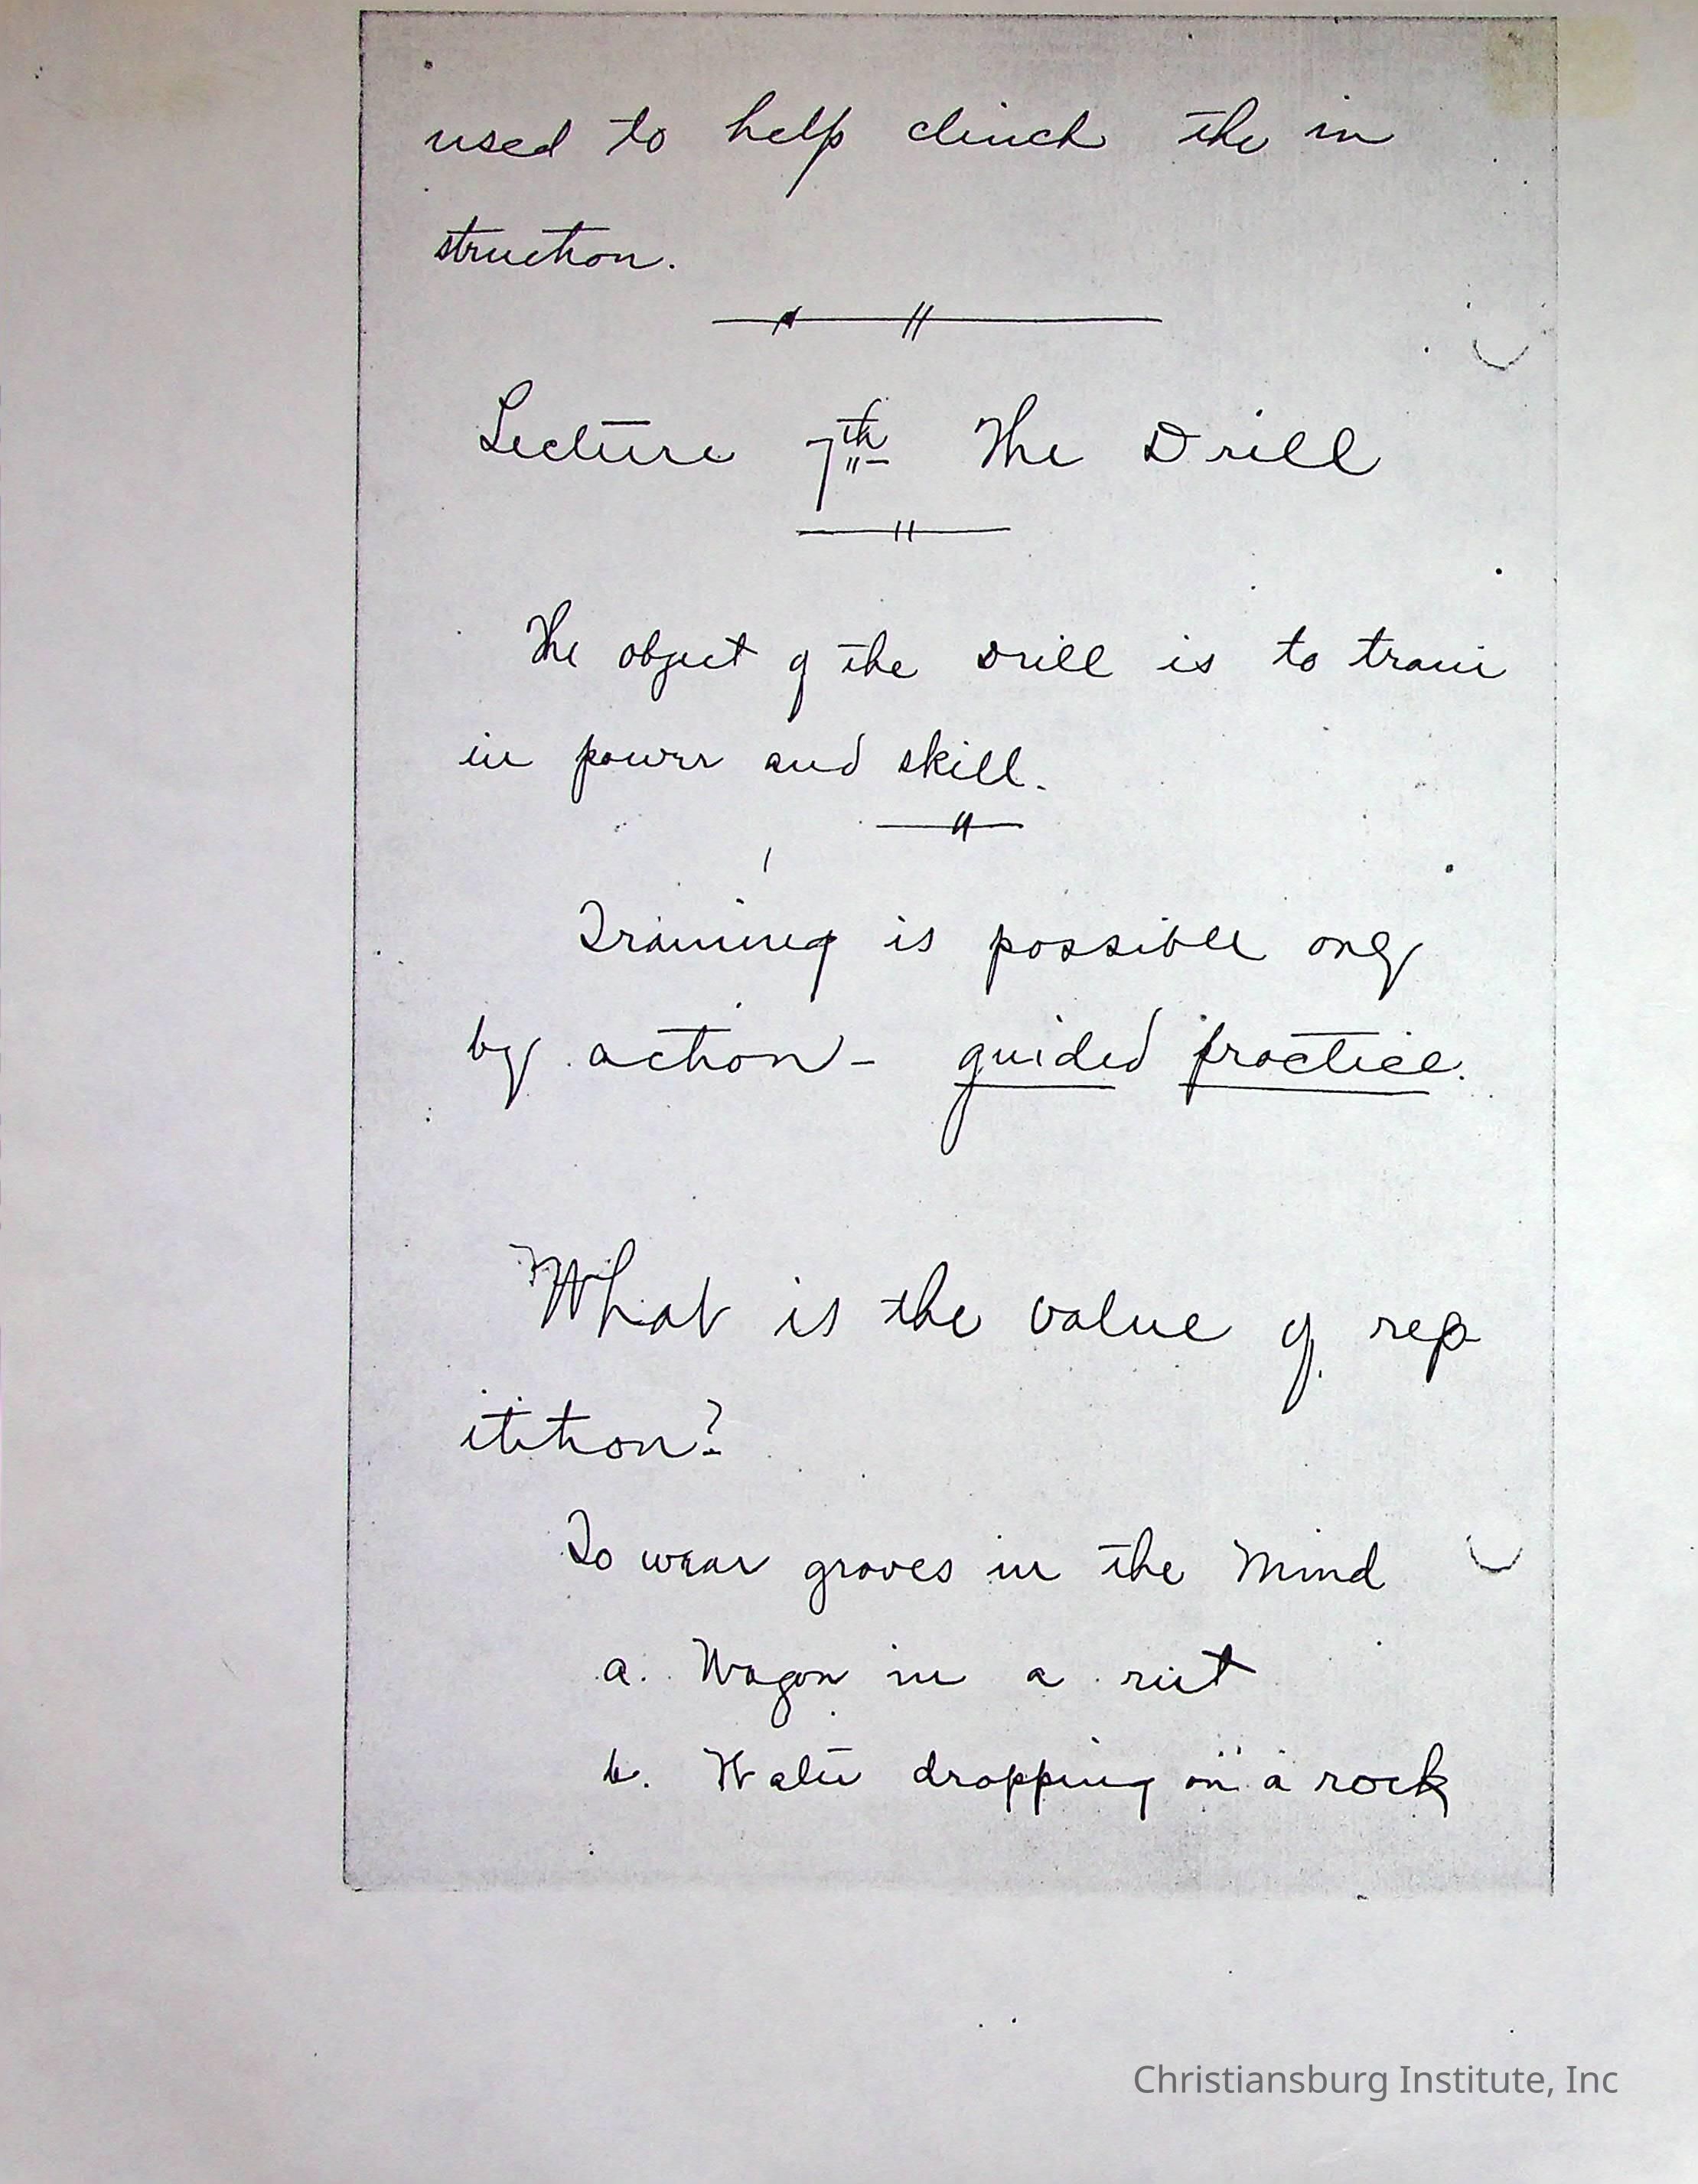 used to help clinch the in
struction.
Lecture 7th The Drill
The object of the Drill is to train
in power and skill.
Training is possible only
by action - guided practice.
What is the value of rep
itition?
To wear groves in the mind
a. Wagon in a rut
b. Water dropping on a rock
Christiansburg Institute, Inc